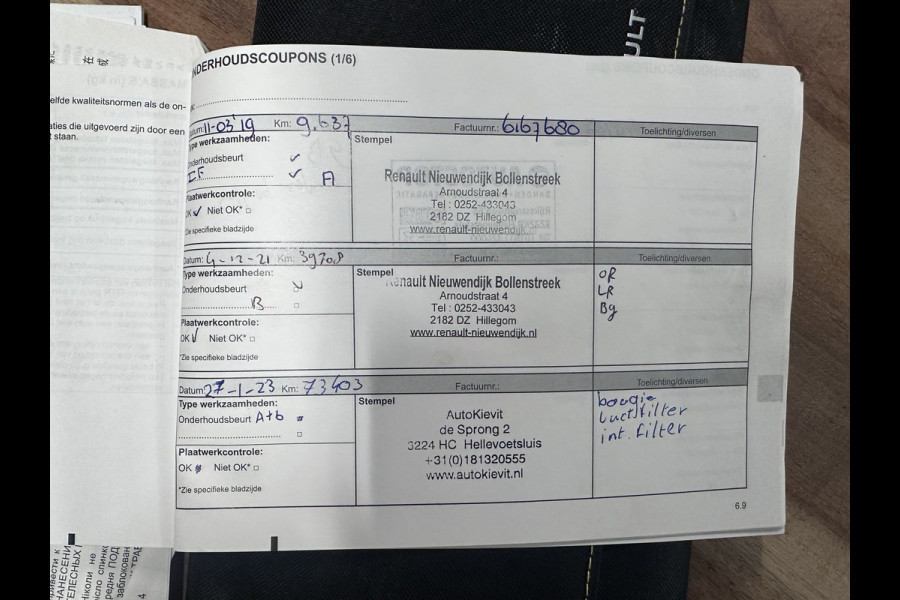 ULT
elfde kwaliteitsnormen als de on-
aties die uitgevoerd zijn door een
t staan.
NDERHOUDSCOUPONS (1/6)
Datum: 11-03'19 Km: 9.637 Factuurnr.: 6167680 Toelichting/diversen
Type werkzaamheden: Stempel
Onderhoudsbeurt ✓
✓ A
Plaatwerkcontrole:
OK ✓ Niet OK* □
*Zie specifieke bladzijde
Renault Nieuwendijk Bollenstreek
Arnoudstraat 4
Tel : 0252-433043
2182 DZ Hillegom
www.renault-nieuwendijk.
Datum: 4-12-21 Km: Factuurnr.: Toelichting/diversen
Type werkzaamheden: Stempel
Onderhoudsbeurt
B □
Plaatwerkcontrole:
OK Niet OK* □
*Zie specifieke bladzijde
Renault Nieuwendijk Bollenstreek
Arnoudstraat 4
Tel : 0252-433043
2182 DZ Hillegom
www.renault-nieuwendijk.nl
OR
LR
Bg
Datum: 27-1-23 Km: 73403 Factuurnr.: Toelichting/diversen
Type werkzaamheden: Stempel
Onderhoudsbeurt A+b
□
Plaatwerkcontrole:
OK Niet OK* □
*Zie specifieke bladzijde
AutoKievit
de Sprong 2
3224 HC Hellevoetsluis
+31(0)181320555
www.autokievit.nl
bougie
luctfilter
int. filter
6.9